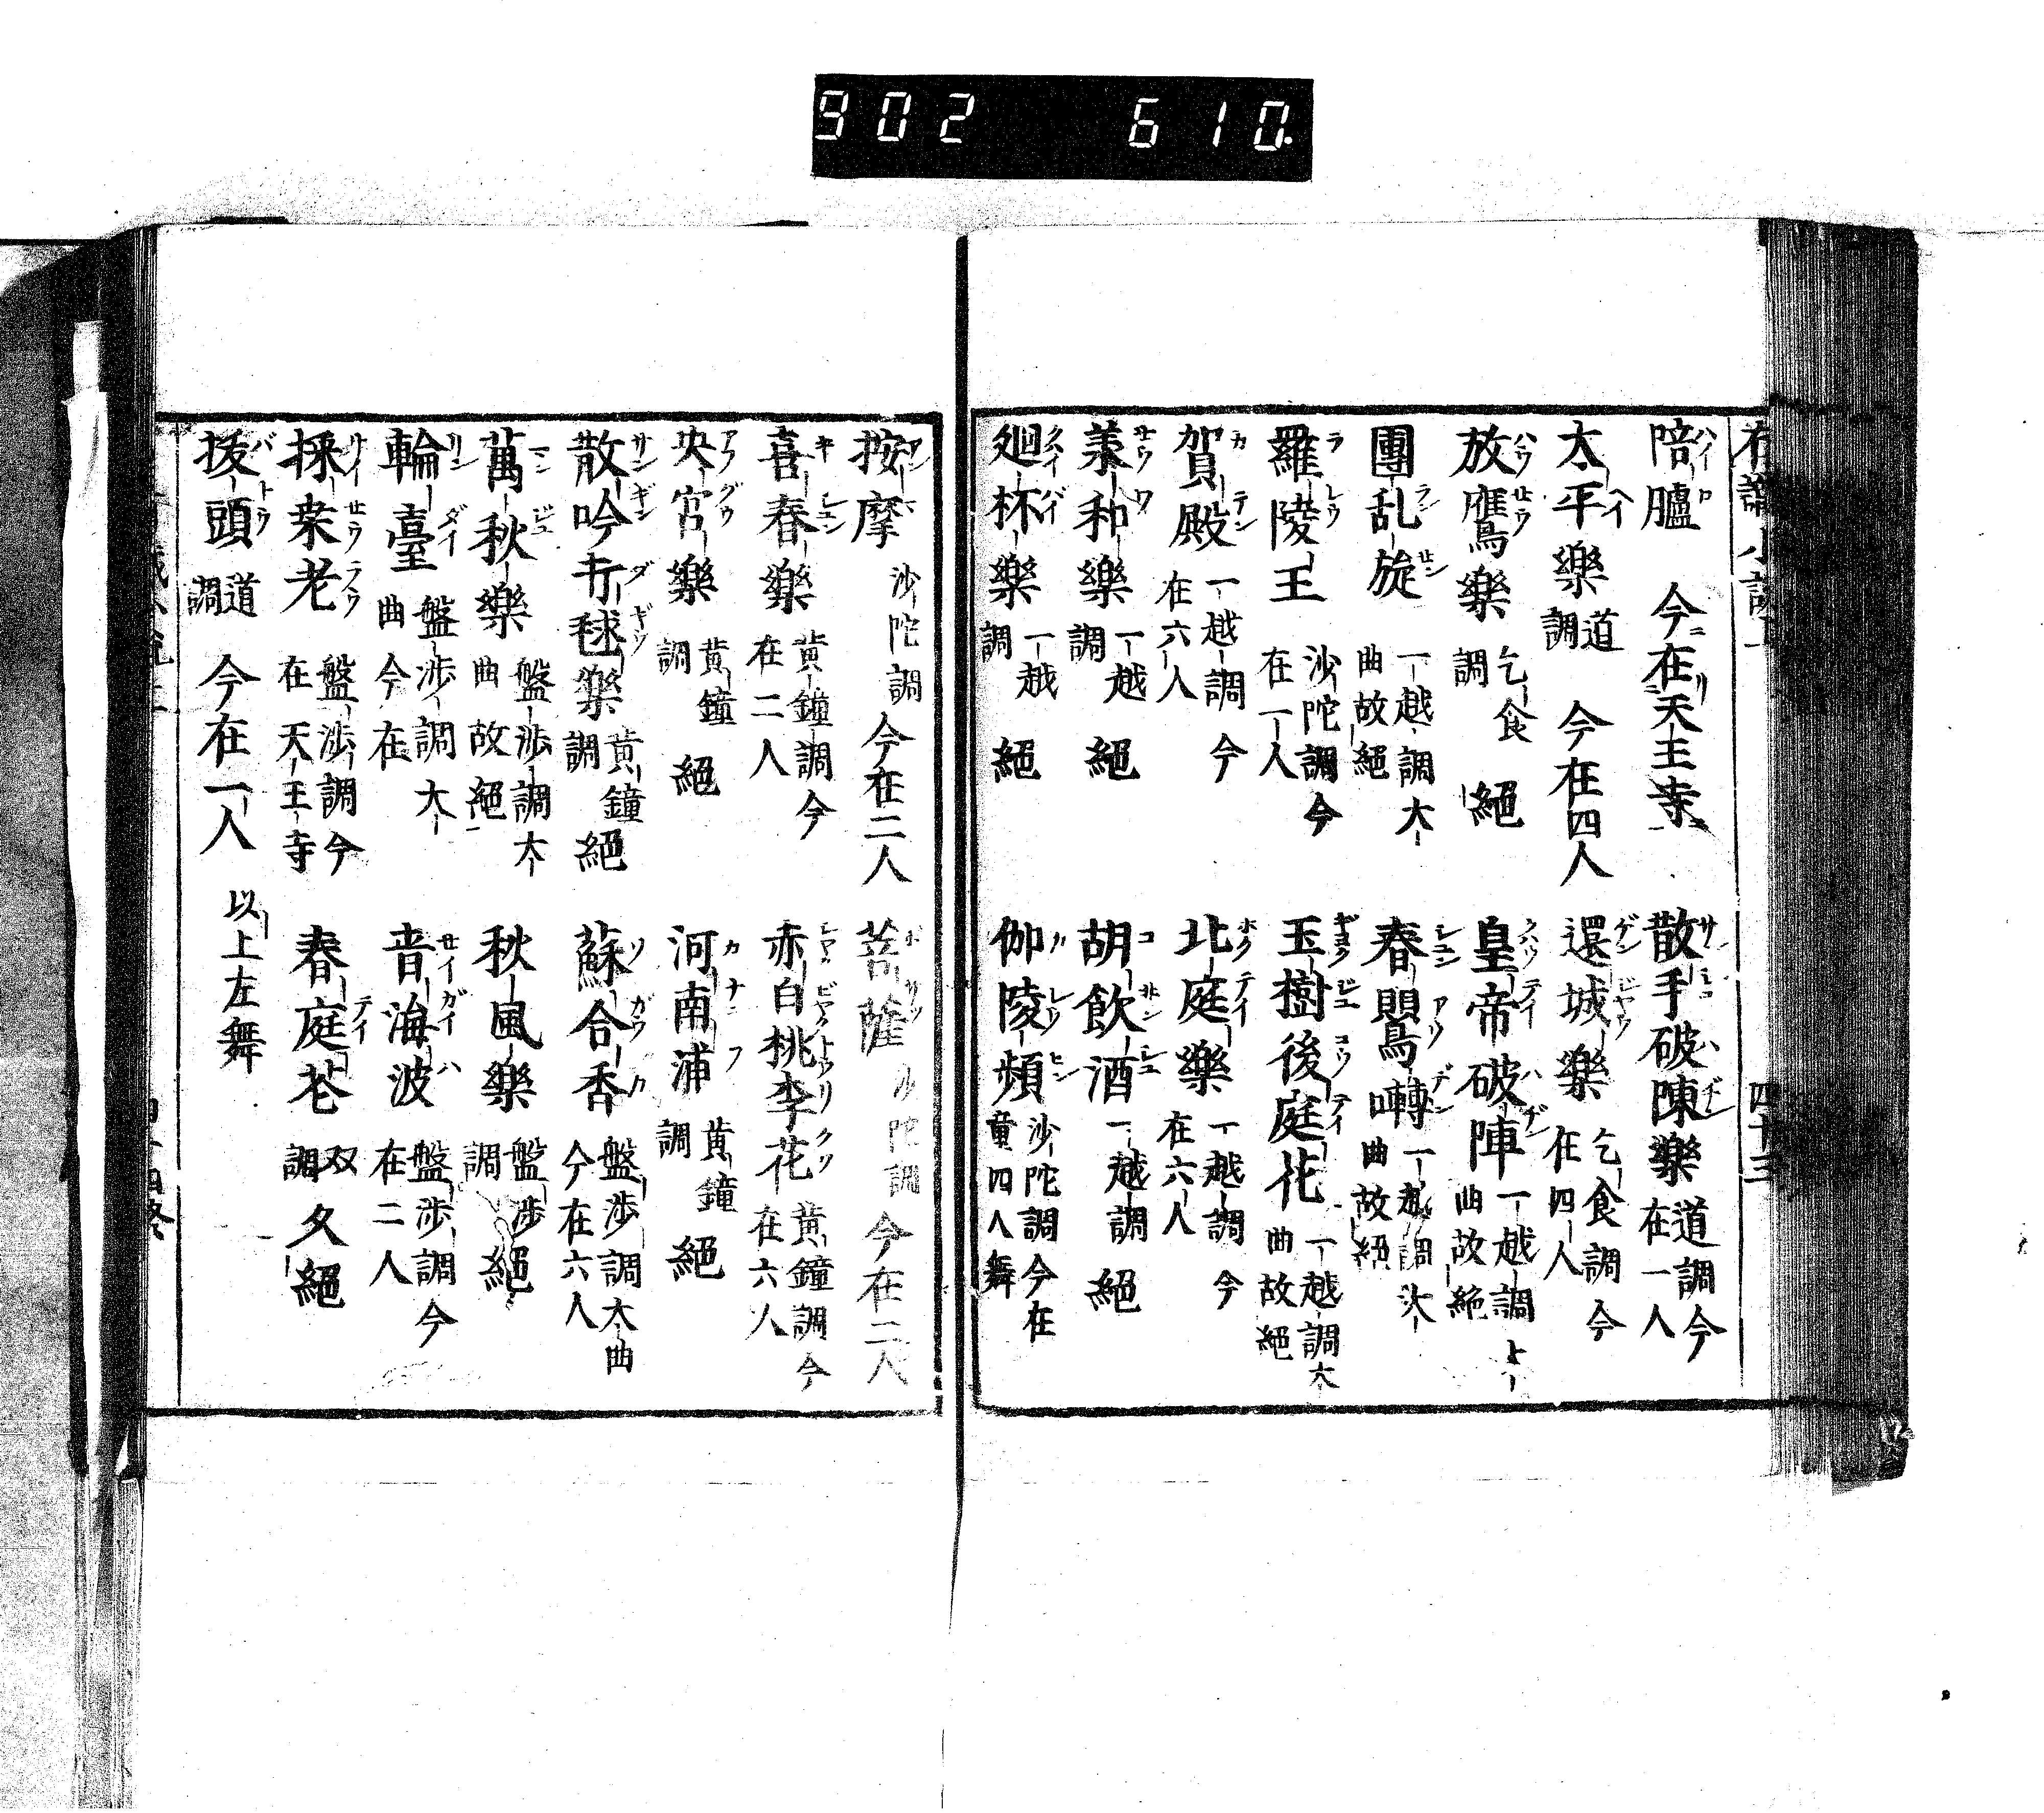 902 610.
陪臚 今在天王寺 散手破陳樂 道調今在一人
太平樂 道調 今在四人 還城樂 乞食調今在四人
放鷹樂 乞食調 絕 皇帝破陣 一越調大曲故絕
團乱旋 一越調大曲故絕 春鸎囀 一越調大曲故絕
羅陵王 沙陀調今在一人 玉樹後庭花 一越調大曲故絕
賀殿 一越調今在六人 北庭樂 一越調今在六人
羕和樂 一越調 絕 胡飲酒 一越調 絕
廻杯樂 一越調 絕 伽陵頻 沙陀調今在童四人舞
四十三
按摩 沙陀調 今在二人 菩薩 沙陀調 今在二人
喜春樂 黃鐘調今在二人 赤白桃李花 黃鐘調今在六人
央宮樂 黃鐘調 絕 河南浦 黃鐘調 絕
散吟打毬樂 黃鐘調 絕 蘇合香 盤渉調大曲今在六人
萬秋樂 盤渉調大曲故絕 秋風樂 盤渉調 絕
輪臺 盤渉調大曲今在 青海波 盤渉調今在二人
採桒老 盤渉調今在天王寺 春庭花 双調 久絕
拔頭 道調 今在一人 以上左舞